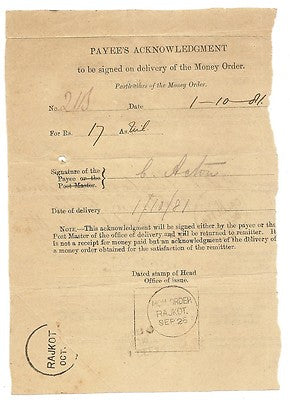 PAYEE'S ACKNOWLEDGMENT
to be signed on delivery of the Money Order.
Particulars of the Money Order.
No. 215 Date 1-10-81
For Rs. 17 As Nil
Signature of the
Payee or the
Post Master.
C. Acton
Date of delivery 1/10/81
NOTE.—This acknowledgment will be signed either by the payee or the
Post Master of the office of delivery and will be returned to remitter. It
is not a receipt for money paid but an acknowledgment of the delivery of
a money order obtained for the satisfaction of the remitter.
Dated stamp of Head
Office of issue.
ORDER
RAJKOT.
SEP 26
RAJKOT
OCT.